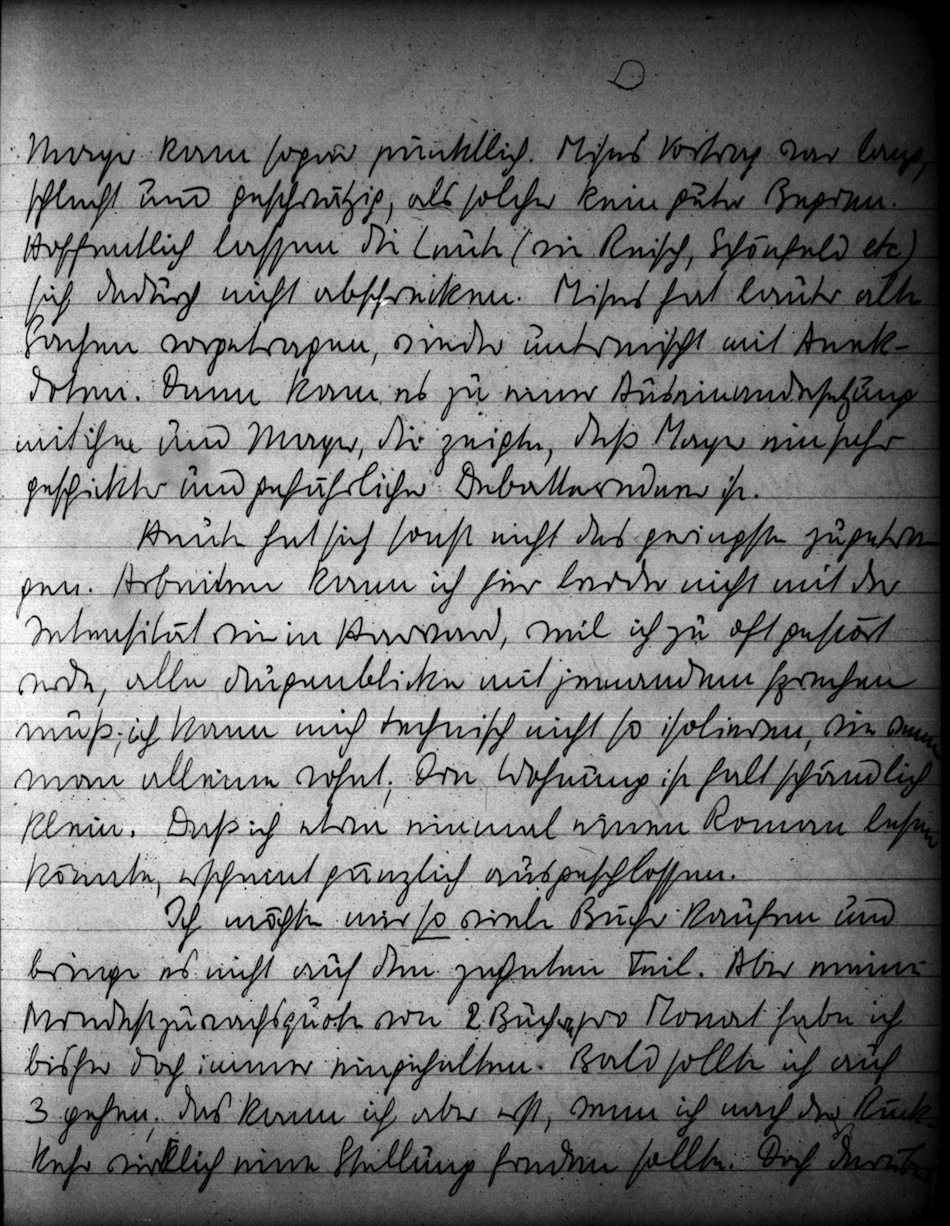 Mayer kam sogar pünktlich. Mises Vortrag war lang,
schlecht und geschwätzig, als solcher kein guter Beginn.
Hoffentlich lassen die Leute (wie Reisch, Schönfeld etc)
sich dadurch nicht abschrecken. Mises hat lauter alte
Sachen vorgetragen, wieder untermischt mit Anek-
doten. Dann kam es zu einer Auseinandersetzung
mit ihm und Mayer, die zeigte, daß Mayer ein sehr
geschickter und gefährlicher Debattenredner ist.
Heute hat sich sonst nicht das geringste zugetra-
gen. Arbeiten kann ich hier leider nicht mit der
Intensität wie in Harvard, weil ich zu oft gestört
werde, alle Augenblicke mit jemandem sprechen
muß; ich kann mich technisch nicht so isolieren, wie wenn
man alleine wohnt; die Wohnung ist halt schändlich
klein. Daß ich etwa einmal einen Roman lesen
könnte, erscheint gänzlich ausgeschlossen.
Ich möchte mir so viele Bücher kaufen und
bringe es nicht auf den zehnten Teil. Aber meine
Mindestzuwachsquote von 2 Büchern pro Monat habe ich
bisher doch immer eingehalten. Bald sollte ich auf
3 gehen; das kann ich aber erst, wenn ich nach der Rück-
kehr wirklich eine Stellung finden sollte. Doch darüber